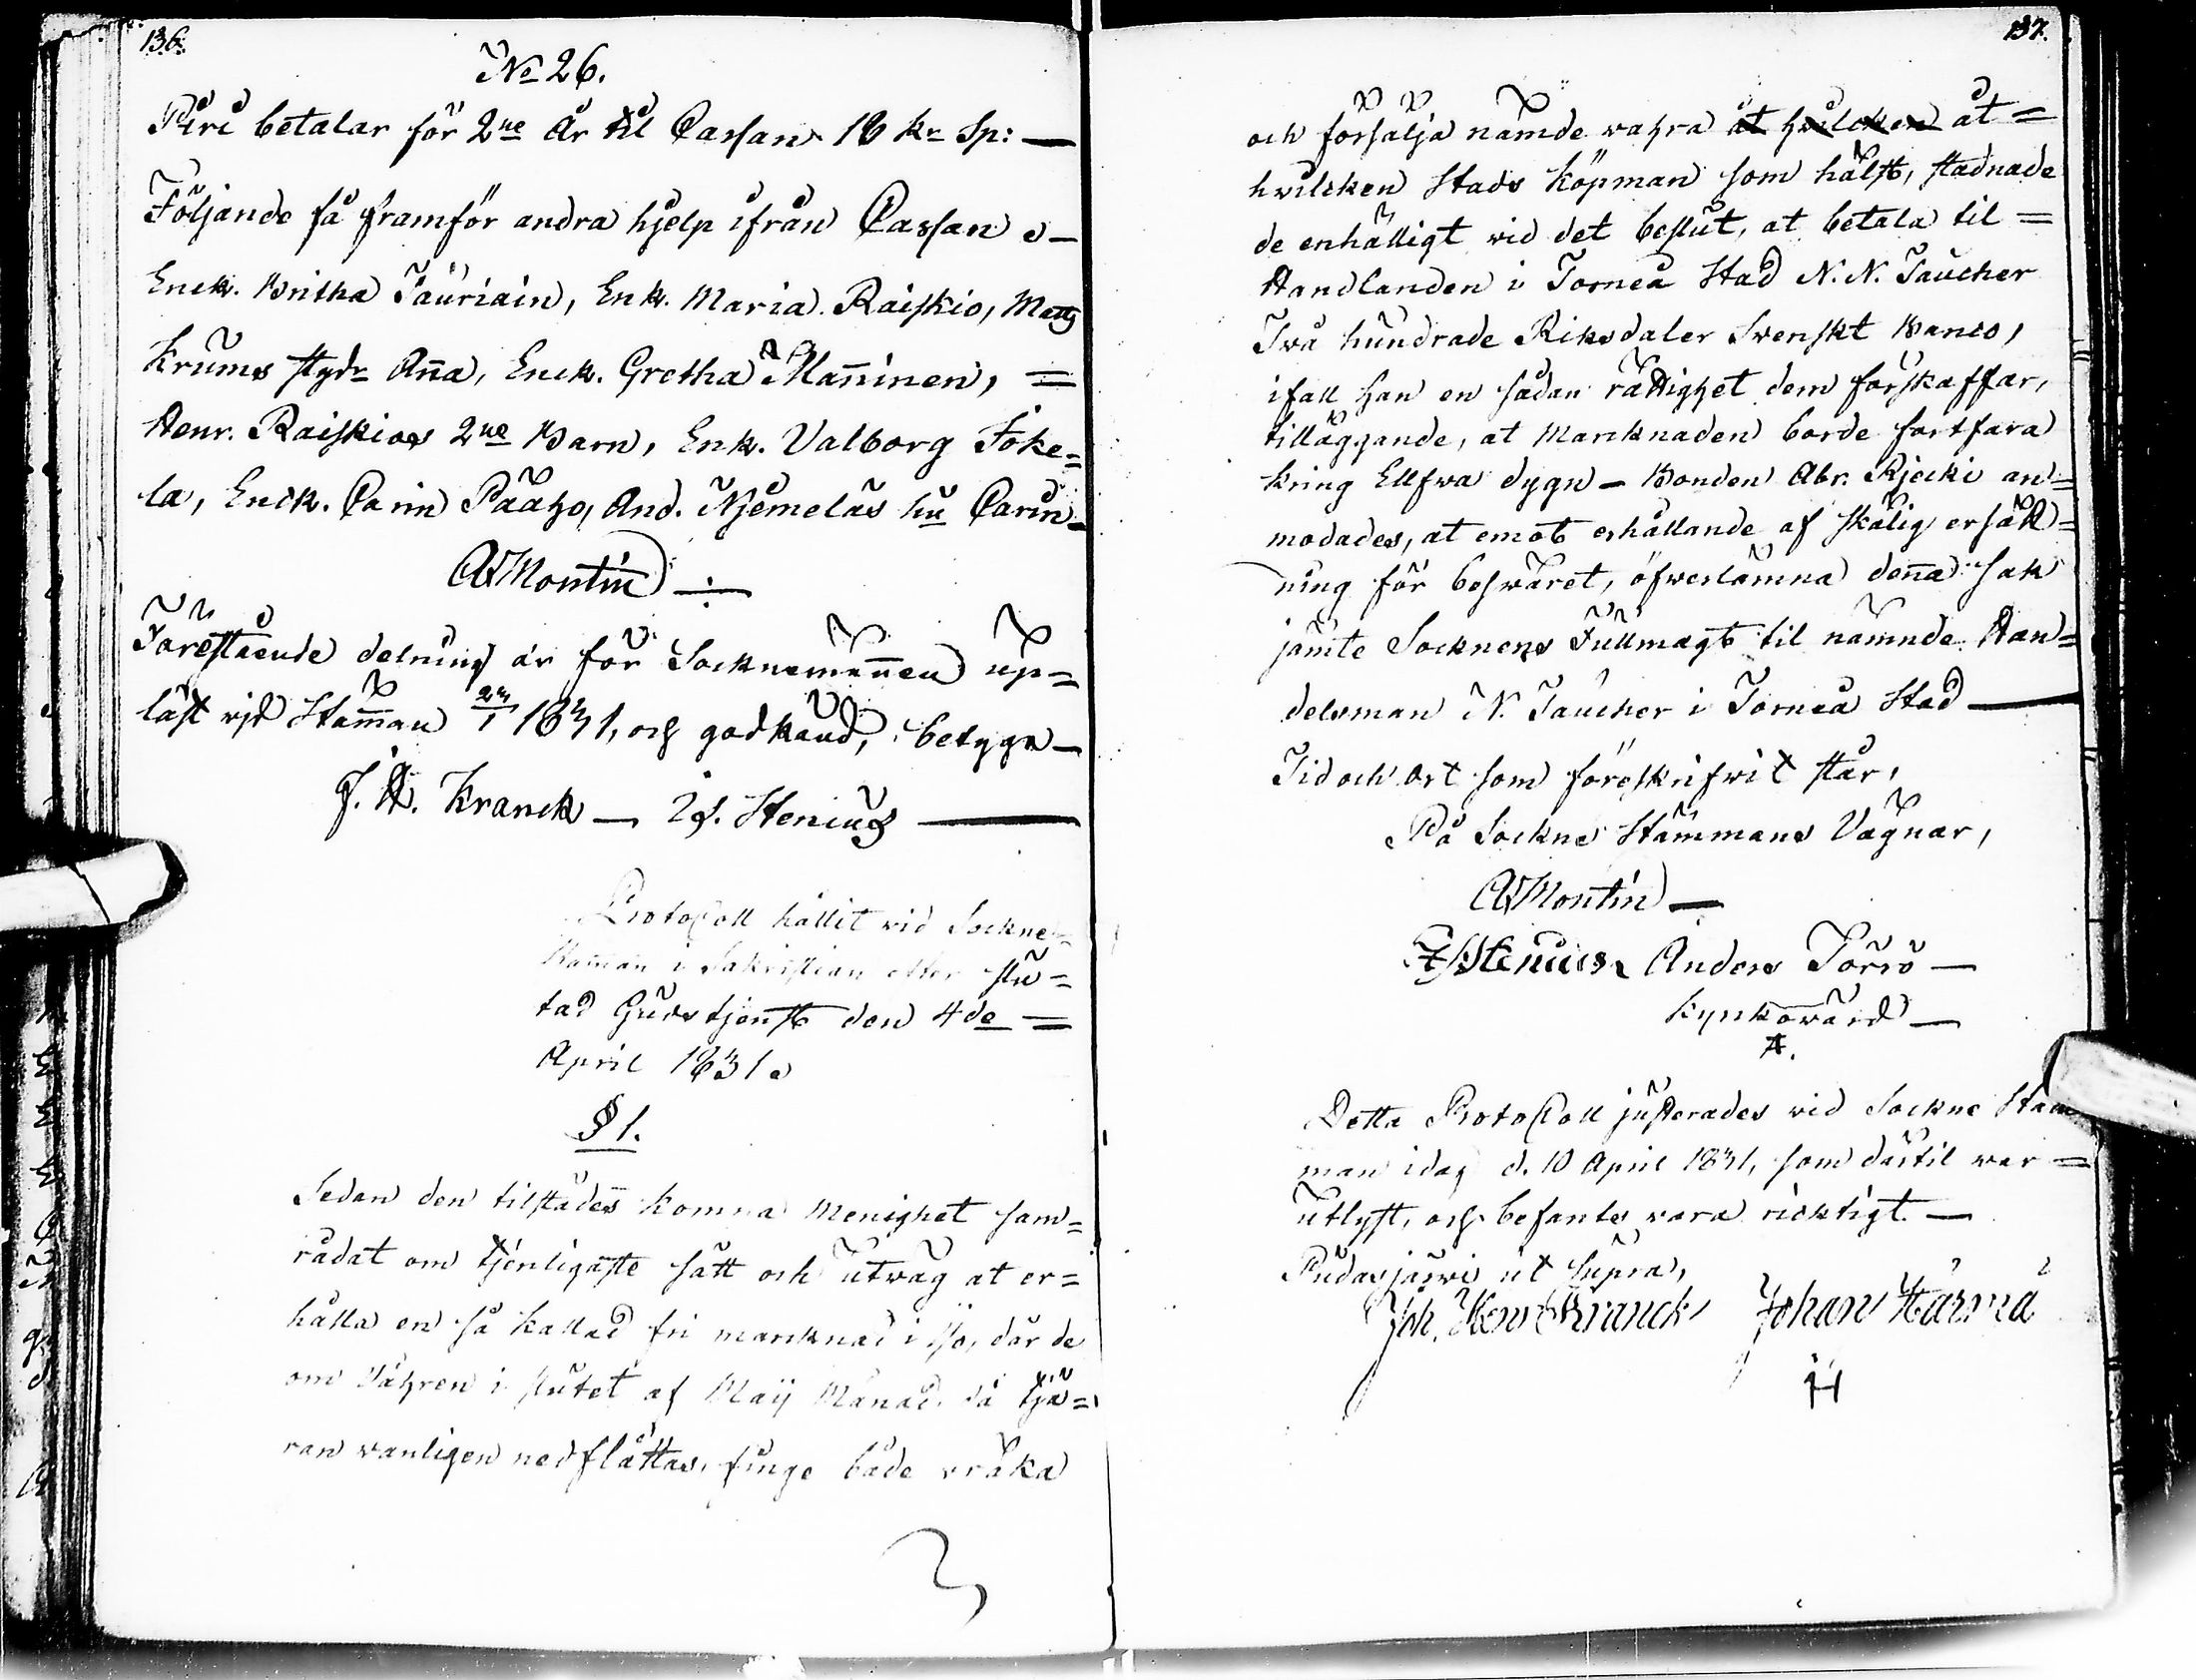 136.
No 26.
Piri betalar för 2ne År til Cassan 16 kr Sp: —
Följande få framför andra hjelp ifrån Cassan —
Enck. Britha Tauriain, Enk. Maria Raiskio, Matts
Krums stydr Anna, Enck. Gretha Manninen, =
Henr. Raiskios 2ne Barn, Enk. Valborg Toke=
la, Enck. Carin Pääho, And. Njemeläs hu Carin —
A Montin
Förestående delning är för Socknemännen up=
läst wid Stämman 1831, och godkänd, betyga —
J. H. Kranck — Is. Stenius —
Protocoll hållit vid Sockne=
stämman i Sakristian efter slu=
tad Gudstjenst den 4de =
April 1831.
§ 1.
Sedan den tilstädes komna Menighet sam=
rådat om tjenligaste sätt och utwäg at er=
hålla en så kallad fri marknad i Ijo, där de
om Våhren i slutet af Maij Månad, då tjä=
ran vanligen nedflåttas, finge både vräka
137.
och försälja nämde wahra åt hvilcken åt=
hvilcken Stads Köpman som hälst, stadnade
de enhälligt vid det beslut, at betala til =
Handlanden i Torneå Stad N. N. Taucher
Två hundrade Riksdaler Svenskt Banco,
ifall han en sådan rättighet dem förskaffar,
tilläggande, at Marcknaden borde fortfara
kring Ellfwa dygn — Bonden Abr. Rjecki an=
modades, at emot erhållande af skälig ersätt=
ning för beswäret, öfwerlämna denna sak
jämte Socknens Fullmagt til nämnde Han=
delsman N. Taucher i Torneå Stad —
Tid och Ort som föreskrifwit står,
På Sockne Stämmans Vägnar,
A Montin —
Is Stenius Anders Törrö —
Kyrkovärd —
A.
Detta Protocoll justerades vid Sockne Stäm
man idag d. 10 April 1831, som därtil war =
utlyst, och befants vara ricktigt. —
Pudasjärvi ut supra,
Joh. Henr Kranck Johan Härmä